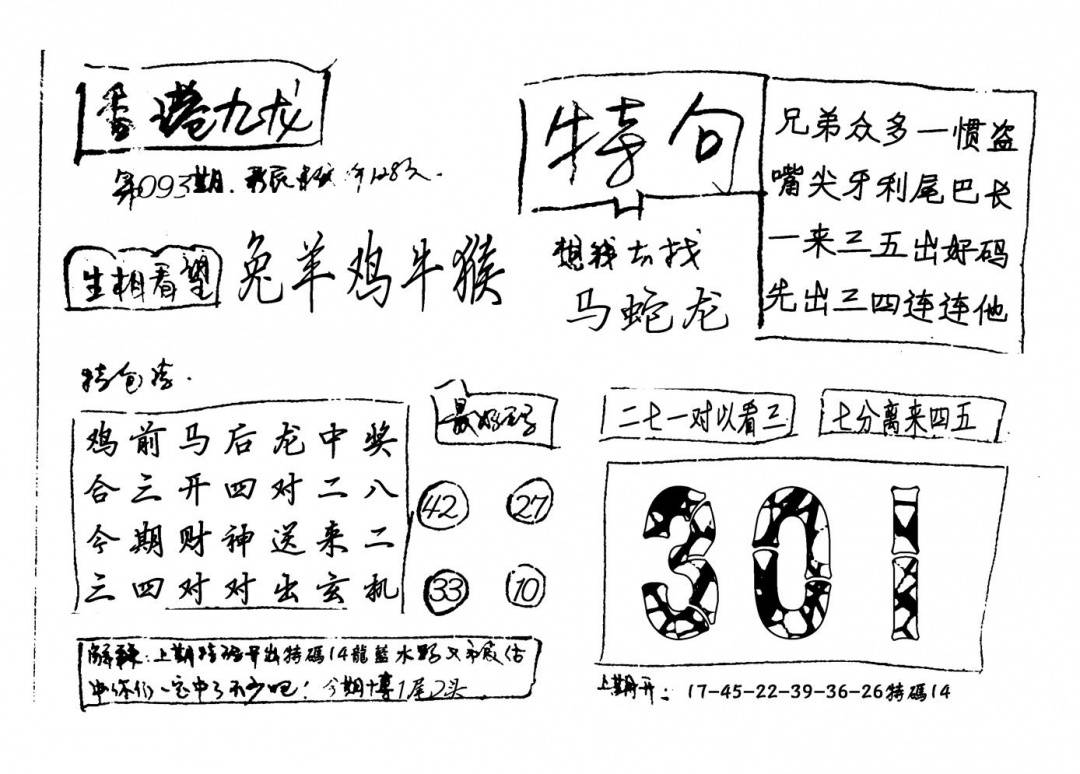 香港九龙
第093期.
生相看望
兔羊鸡牛猴
特句
想我去找
马蛇龙
兄弟众多一惯盗
嘴尖牙利尾巴长
一来三五出好码
先出三四连连他
鸡前马后龙中奖
合三开四对二八
今期财神送来二
三四对对出玄机
42 27
33 10
二七一对以看三
七分离来四五
301
解释:上期特码开出特碼14龍藍水野又市家估
中你们一定中了不少吧!今期博1尾2头
上期开: 17-45-22-39-36-26特碼14